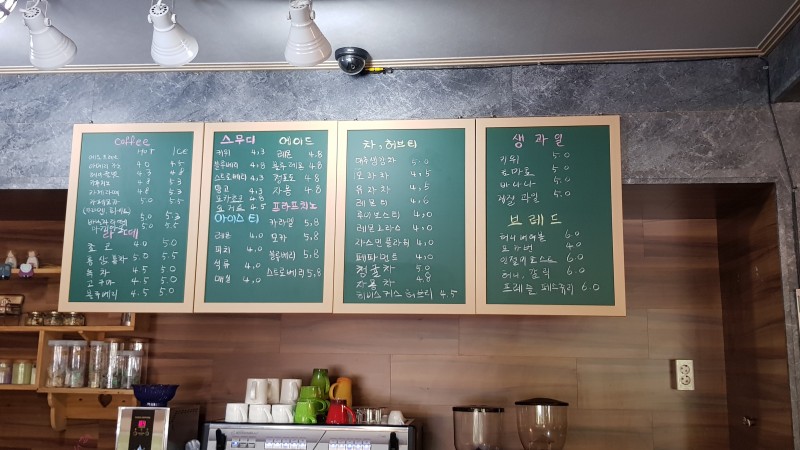 Coffee
HOT ICE
4.0 4.5
4.3 5.3
4.8 5.3
4.8 5.3
5.0 5.5
5.0 5.3
5.0 5.5
라떼
초코 4.0 5.0
홍삼 5.0 5.0
녹차 4.5 5.0
고구마 4.5 5.0
블루베리 4.5 5.0
스무디
키위 4.3
블루베리 4.3
스트로베리 4.3
망고 4.3
요거트 4.5
아이스티
레몬 4.0
피치 4.0
석류 4.0
매실 4.0
에이드
레몬 4.8
블루레몬 4.8
청포도 4.8
자몽 4.8
프라프치노
카라멜 5.8
모카 5.8
블루베리 5.8
스트로베리 5.8
차, 허브티
대추생강차 5.0
모과차 4.5
유자차 4.5
레몬티 4.5
루이보스티 4.0
레몬그라스 4.0
자스민플라워 4.0
페파민트 4.0
5.0
자몽차 4.8
히비스커스 허브티 4.5
생과일
키위 5.0
토마토 5.0
바나나 5.0
계절 과일 5.0
브레드
허니 6.0
4.0
인절미토스트 6.0
허니, 갈릭 6.0
프레즐 페스츄리 6.0